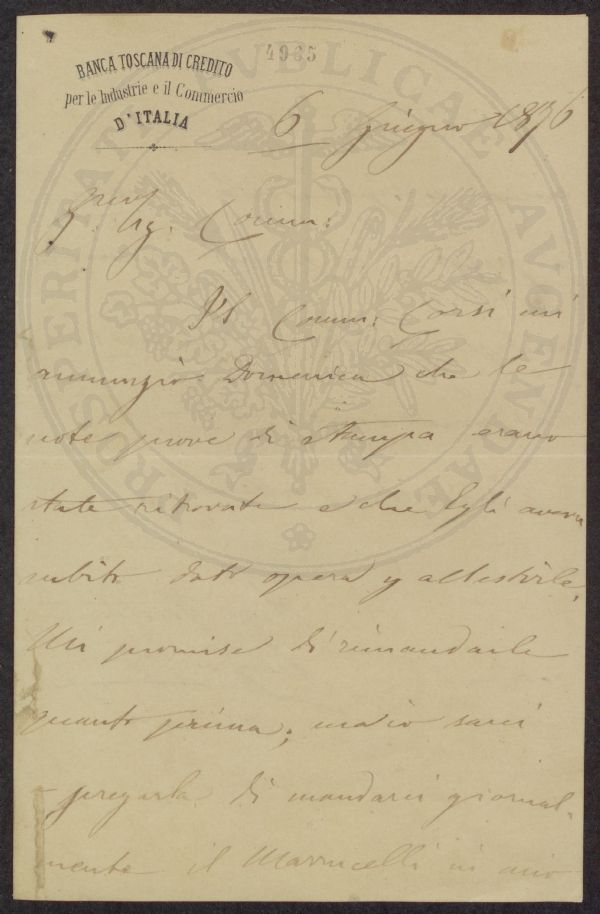 4965
BANCA TOSCANA DI CREDITO
per le Industrie e il Commercio
D'ITALIA
6 Giugno 1876
Sig. Comm:
Il Comm: Corsi mi
annunziò Domenica che le
note prove di stampa erano
state ritrovate e che Egli aveva
subito dato opera p allestirle.
Mi promise di rimandarle
quanto prima; ma io sarei
a pregarla di mandarci giornal-
mente il Marrucelli in
PROSPERITATI PUBLICAE AUGENDAE